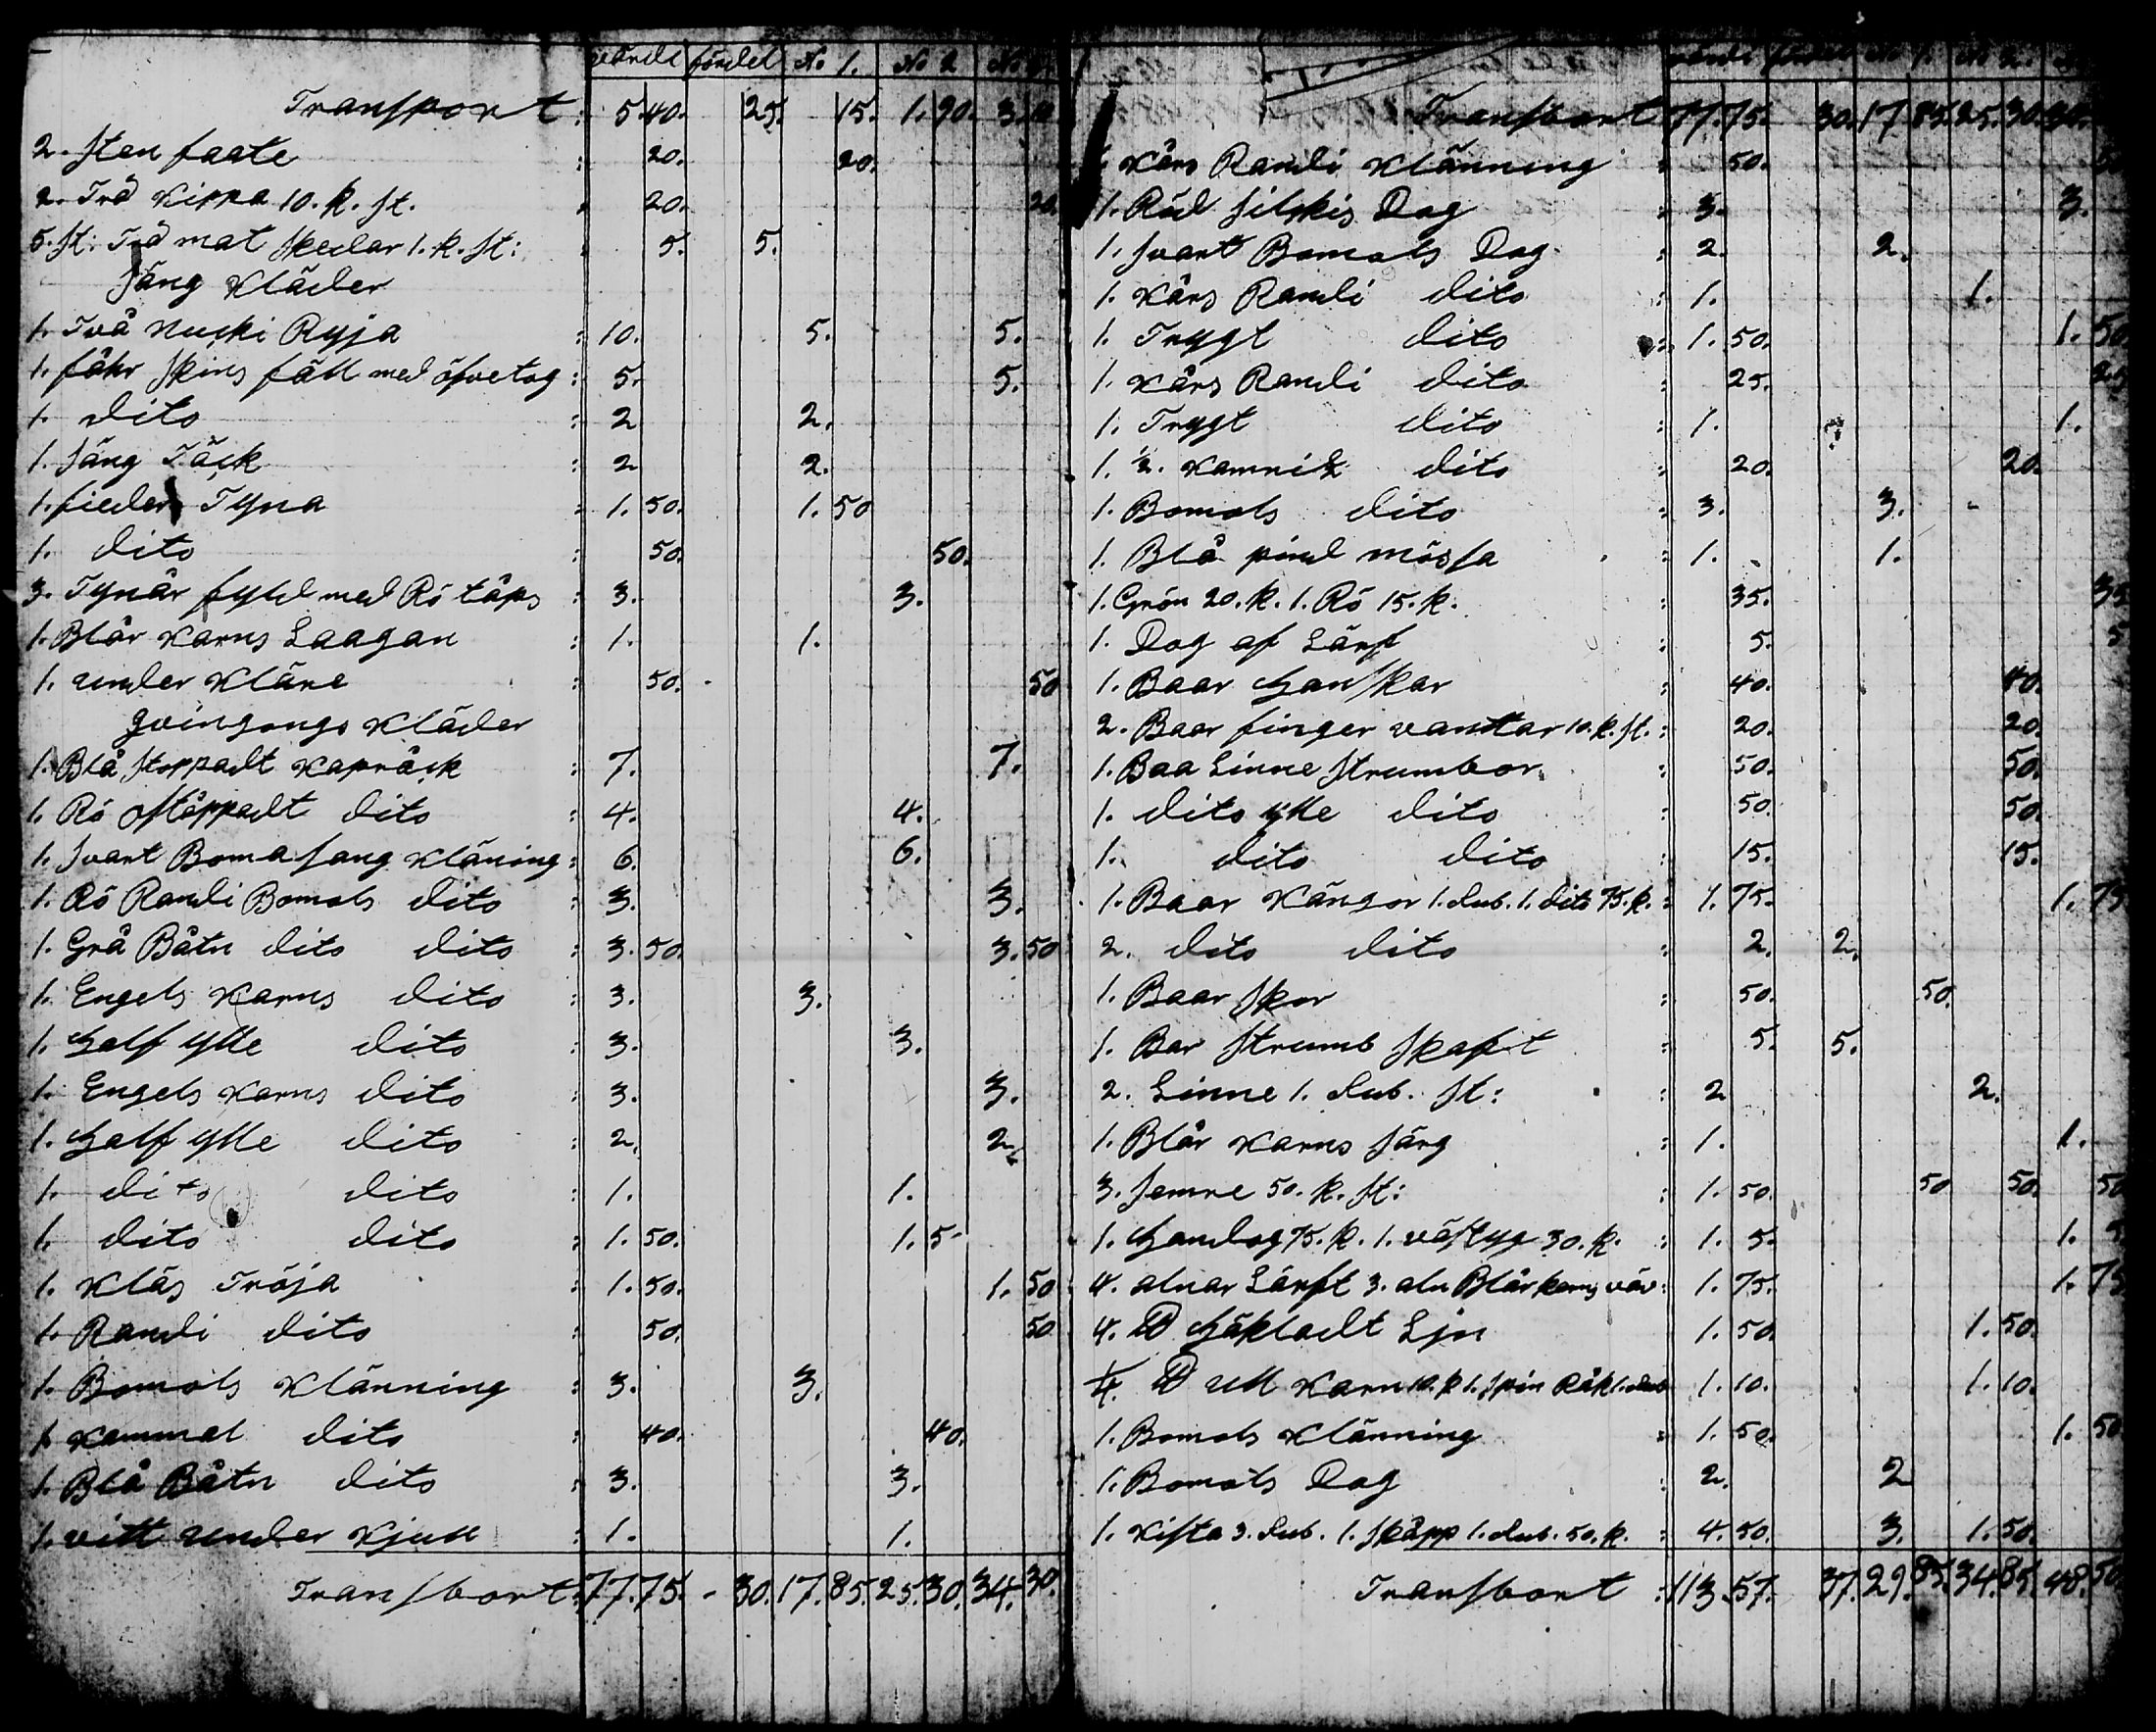 värde fördel No 1. No 2 No 3.
Transport : 5.40. 25. 15. 1.90. 3.10
2. sten faate : 20. 20.
2. Trä Kippa 10. k. st. : 20. 20.
5. st. Trä mat skedar 1. k. st: : 5. 5.
säng Kläder
1. Två Nucki Ryja : 10. 5. 5.
1. fåhr skins fäll med öfvetog : 5. 5.
1. dito : 2 2.
1. säng Täck : 2 2.
1. fieder Tyna : 1. 50. 1. 50
1. dito : 50. 50.
3. Tynar fyld med Rö tåps : 3. 3.
1. Blår Karns Laagan : 1. 1.
1. under Kläne : 50. 50
gvingongs Kläder
1. Blå stoppadt Kapråck : 7. 7.
1. Rö ostoppadt dito : 4. 4.
1. svart Boma sang Kläning : 6. 6.
1. Rö Randi Bomols dito : 3. 3.
1. Grå Båtn dito dito : 3. 50 3. 50
1. Engels Karns dito : 3. 3.
1. Half ylle dito : 3. 3.
1. Engels Karns dito : 3. 3.
1. Half ylle dito : 2. 2.
1. dito dito : 1. 1.
1. dito dito : 1. 50. 1. 5-
1. Kläs Tröja : 1. 50. 1. 50
1. Randi dito : 50. 50
1. Bomols Klänning : 3. 3.
1. Kammal dito : 40. 40.
1. Blå Båtn dito : 3. 3.
1. vitt under Kjull : 1. 1.
Transbort : 77.75. - 30. 17. 85. 25. 30. 34. 30.
värde fördel No 1. No 2.
Transbort 77.75. 30. 17 85. 25. 30. 34.
1 Kårs Randi Klänning : 50. 50
1. Röd silskis Dog : 3. 3.
1. svart Bomols Dog : 2. 2.
1. Kårs Randi dito : 1. 1.
1. Trygt dito : 1. 50. 1. 50
1. Kårs Randi dito : 25. 25
1. Trygt dito : 1. 1.
1. ½. Kamnik dito : 20. 20.
1. Bomols dito : 3. 3.
1. Blå pind mössa : 1. 1.
1. Grön 20. k. 1. Rö 15. k. : 35. 35
1. Dog af Lärft : 5. 5
1. Baar Hanskar : 40. 40.
2. Baar finger vantar 10. k. st. : 20. 20.
1. Baa Linne strumbor : 50. 50.
1. dito ylle dito : 50. 50.
1. dito dito : 15. 15.
1. Baar Kängor 1. Rub. 1. dito 75. k. : 1. 75. 1. 75
2. dito dito : 2. 2.
1. Baar skor : 50. 50.
1. Bar strumb skaft : 5. 5.
2. Linne 1. Rub. st: : 2 2.
1. Blår Karns särg : 1. 1.
3. semre 50. k. st: : 1. 50. 50 50. 50
1. Handog 75. k. 1. väftyg 30. k. : 1. 5. 1. 5
4. alnar Lärft 3. aln Blår karns väv : 1. 75. 1. 75
4. ℔ Häkladt Lin 1. 50 1. 50.
¼. ℔ ull Karn 10. k 1. spin Råk 1. Rub 1. 10. 1. 10.
1. Bomols Klänning : 1. 50. 1. 50
1. Bomols Dog : 2. 2
1. Kista 3. Rub. 1. skåpp 1. Rub. 50. k. : 4. 50. 3. 1. 50.
Transbort : 113.57. 37. 29. 85. 34. 85. 48. 50